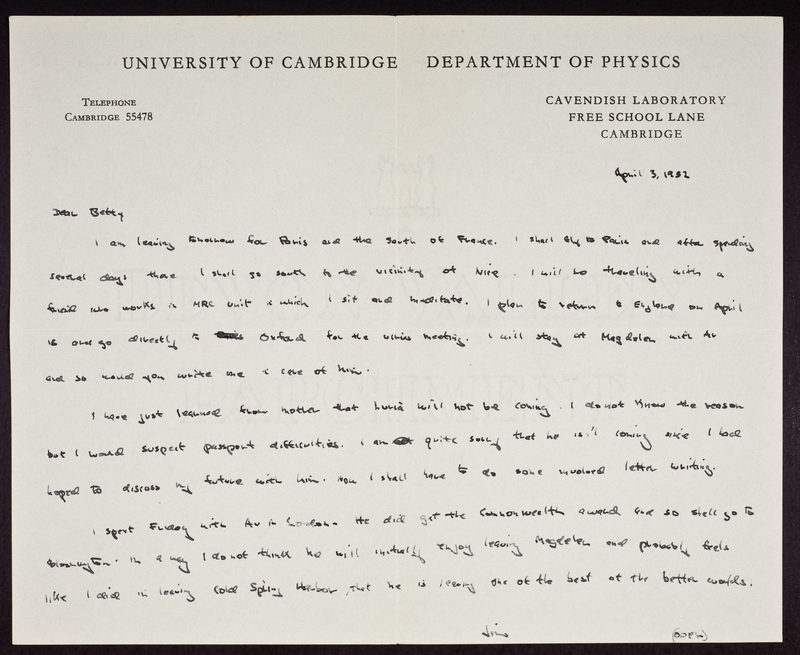 UNIVERSITY OF CAMBRIDGE DEPARTMENT OF PHYSICS
TELEPHONE
CAMBRIDGE 55478
CAVENDISH LABORATORY
FREE SCHOOL LANE
CAMBRIDGE
April 3, 1952
Dear Betty
I am leaving tomorrow for Paris and the South of France. I shall fly to Paris and after spending
several days there I shall go south to the vicinity of Nice. I will be traveling with a
friend who works in MRC unit in which I sit and meditate. I plan to return to England on April
15 and go directly to Oxford for the virus meeting. I will stay at Magdalen with Av
and so would you write me in care of him.
I have just learned from mother that Luria will not be coming. I do not know the reason
but I would suspect passport difficulties. I am quite sorry that he isn't coming since I had
hoped to discuss my future with him. Now I shall have to do some involved letter writing.
I spent Friday with Av in London. He did get the Commonwealth award and so shall go to
Bloomington. In a way I do not think he will initially enjoy leaving Magdalen and probably feels
like I did in leaving Cold Spring Harbor, that he is leaving one of the best of the better worlds.
Jim
(OVER)